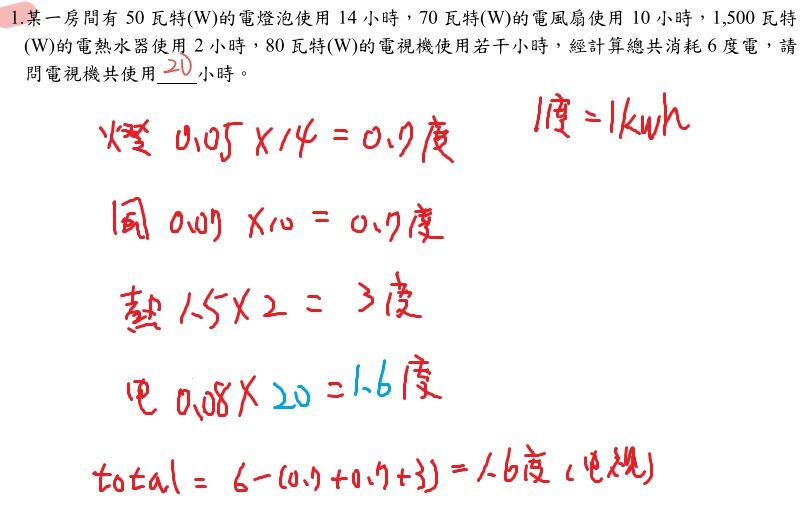 1.某一房間有 50 瓦特(W)的電燈泡使用 14 小時，70 瓦特(W)的電風扇使用 10 小時，1,500 瓦特
(W)的電熱水器使用 2 小時，80 瓦特(W)的電視機使用若干小時，經計算總共消耗 6 度電，請
問電視機共使用 20 小時。
燈 0.05 × 14 = 0.7度 1度 = 1kwh
風 0.07 × 10 = 0.7度
熱 1.5 × 2 = 3度
电 0.08 × 20 = 1.6度
total = 6-(0.7+0.7+3) = 1.6度 (电視)